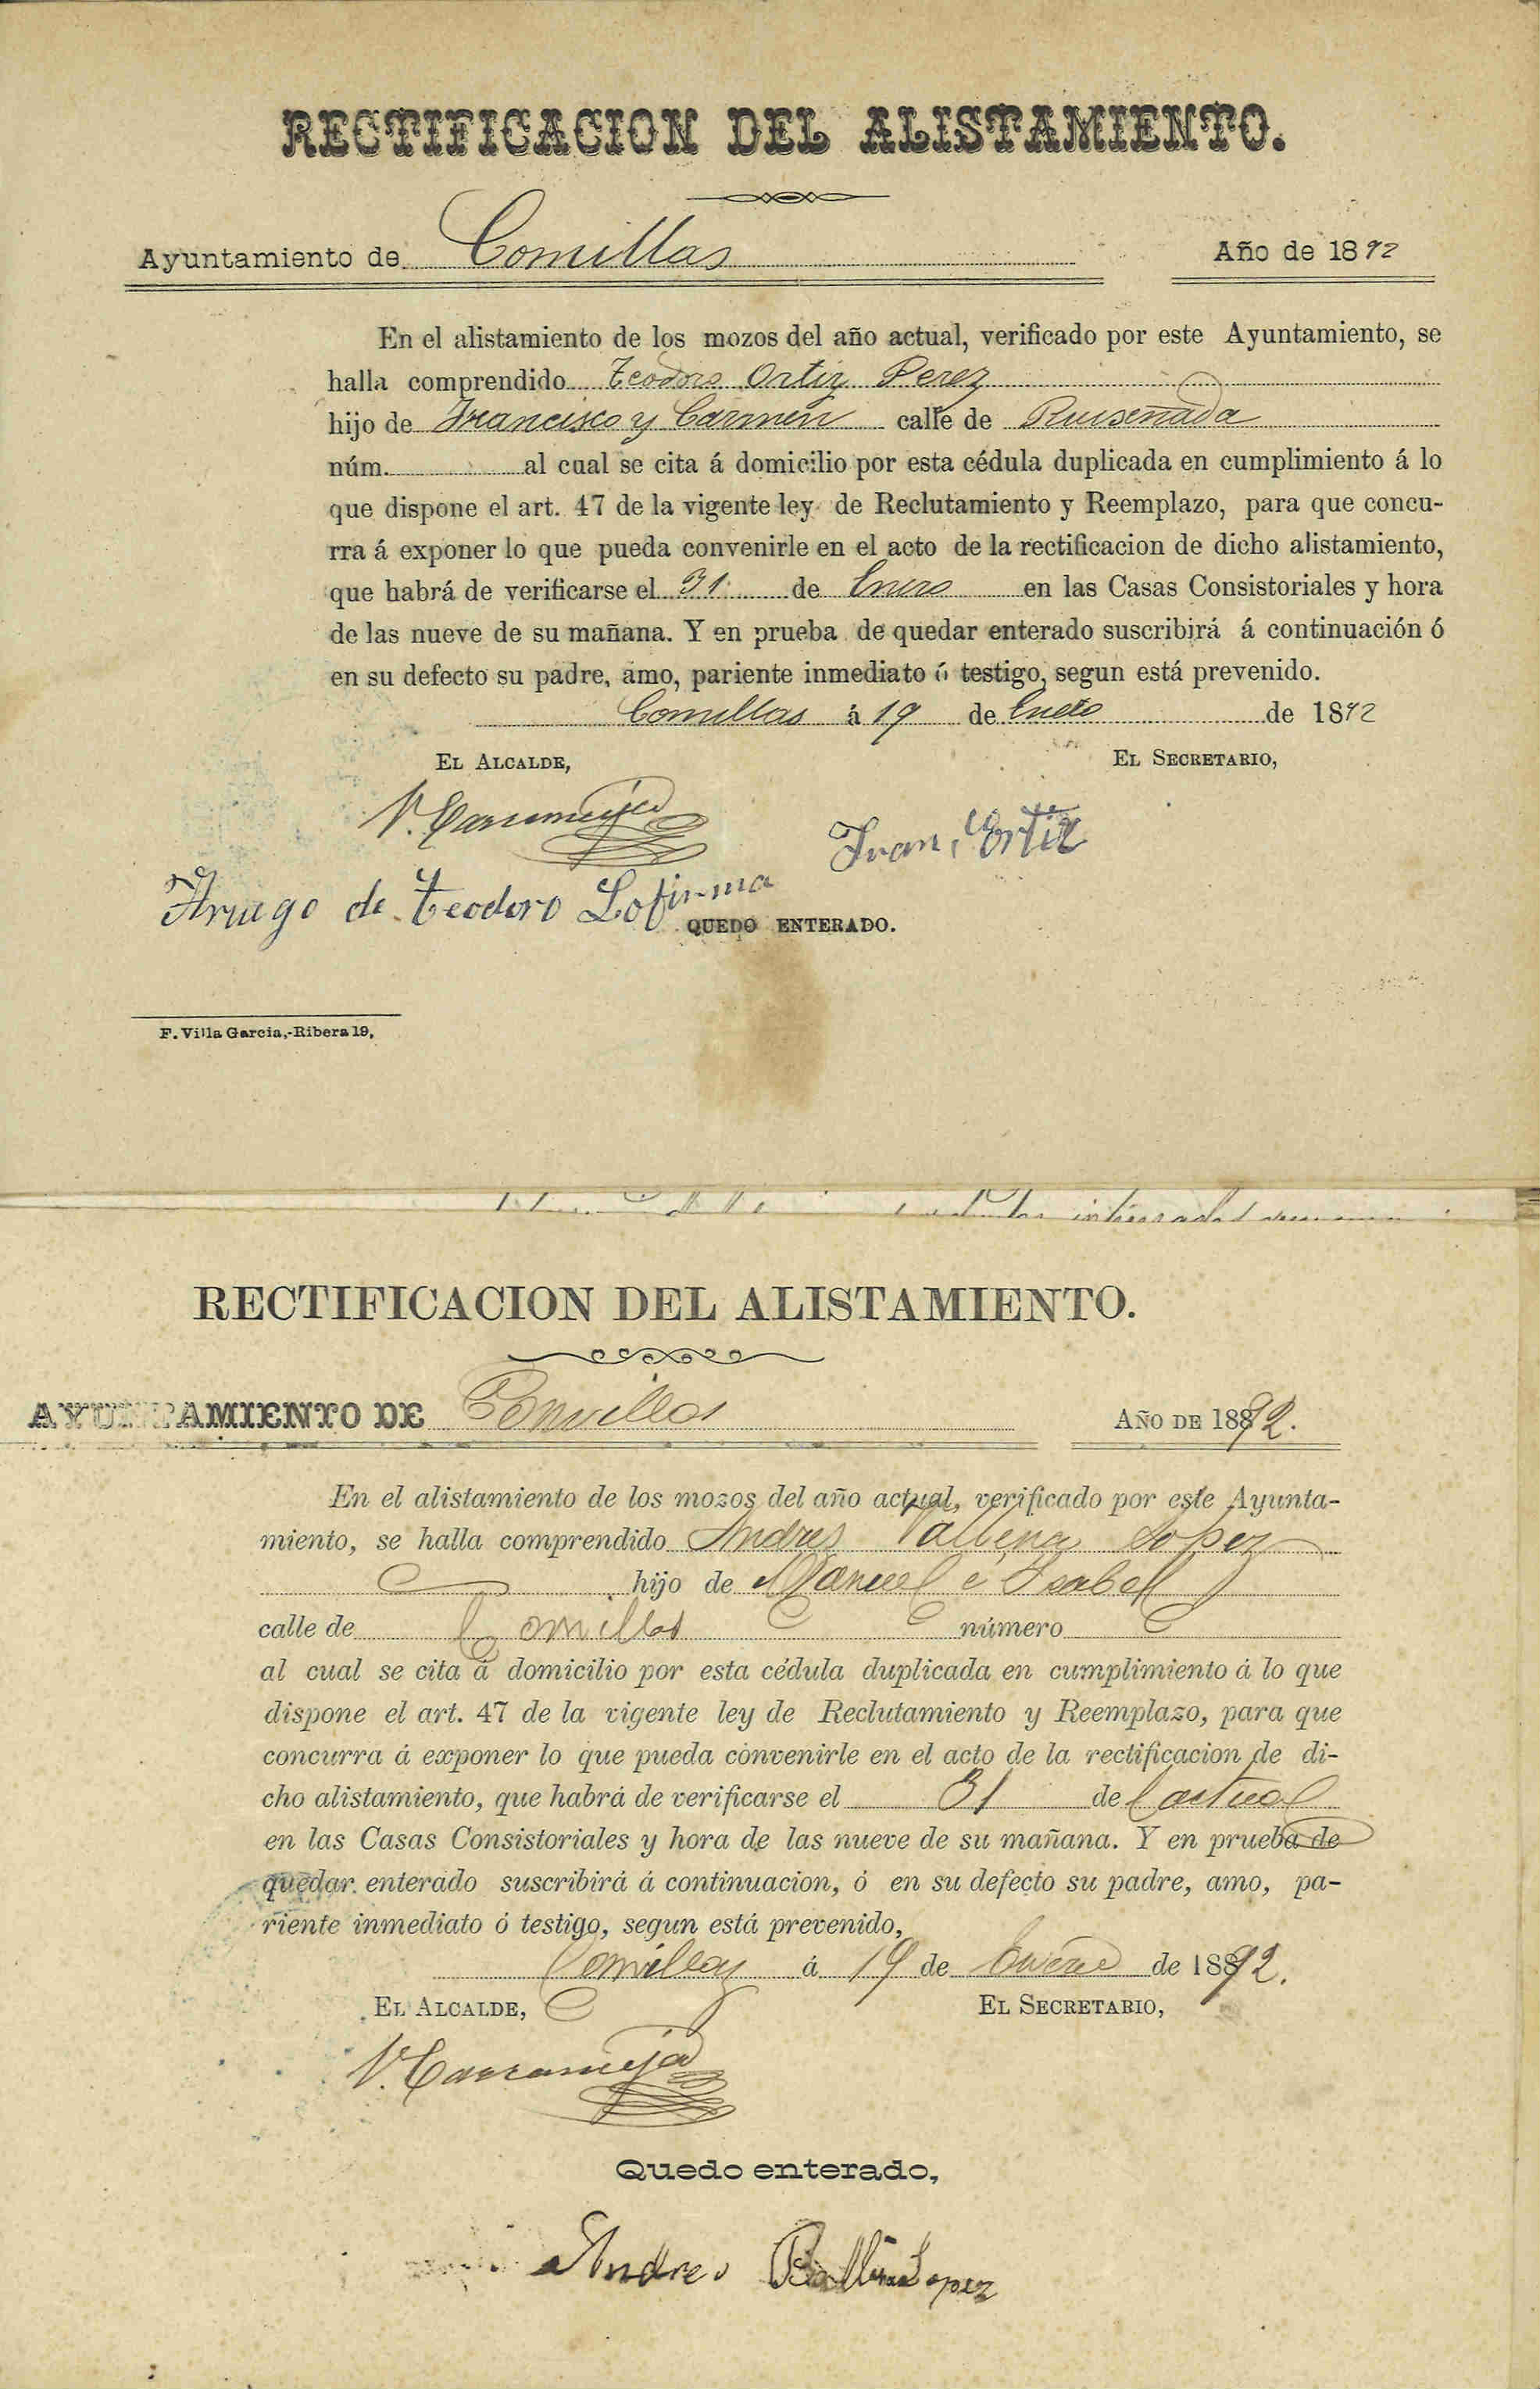 RECTIFICACION DEL ALISTAMIENTO.
Ayuntamiento de Comillas Año de 1892
En el alistamiento de los mozos del año actual, verificado por este Ayuntamiento, se
halla comprendido Teodoro Ortiz Perez
hijo de Francisco y Carmen calle de Ruiseñada
núm. al cual se cita á domicilio por esta cédula duplicada en cumplimiento á lo
que dispone el art. 47 de la vigente ley de Reclutamiento y Reemplazo, para que concu-
rra á exponer lo que pueda convenirle en el acto de la rectificacion de dicho alistamiento,
que habrá de verificarse el 31 de Enero en las Casas Consistoriales y hora
de las nueve de su mañana. Y en prueba de quedar enterado suscribirá á continuación ó
en su defecto su padre, amo, pariente inmediato ó testigo, segun está prevenido.
Comillas á 19 de Enero de 1892
EL ALCALDE, EL SECRETARIO,
Ortiz
de teodoro Lofirma
QUEDO ENTERADO.
F. Villa Garcia,-Ribera 19,
RECTIFICACION DEL ALISTAMIENTO.
AYUNTAMIENTO DE Comillas AÑO DE 1892.
En el alistamiento de los mozos del año actual, verificado por este Ayunta-
miento, se halla comprendido Andres Vallina Lopez
hijo de Manuel é Isabel
calle de Comillas número
al cual se cita á domicilio por esta cédula duplicada en cumplimiento á lo que
dispone el art. 47 de la vigente ley de Reclutamiento y Reemplazo, para que
concurra á exponer lo que pueda convenirle en el acto de la rectificacion de di-
cho alistamiento, que habrá de verificarse el 31 de l actual
en las Casas Consistoriales y hora de las nueve de su mañana. Y en prueba de
quedar enterado suscribirá á continuacion, ó en su defecto su padre, amo, pa-
riente inmediato ó testigo, segun está prevenido,
Comillas á 19 de Enero de 1892.
EL ALCALDE, EL SECRETARIO,
Quedo enterado,
Andres Ballina Lopez